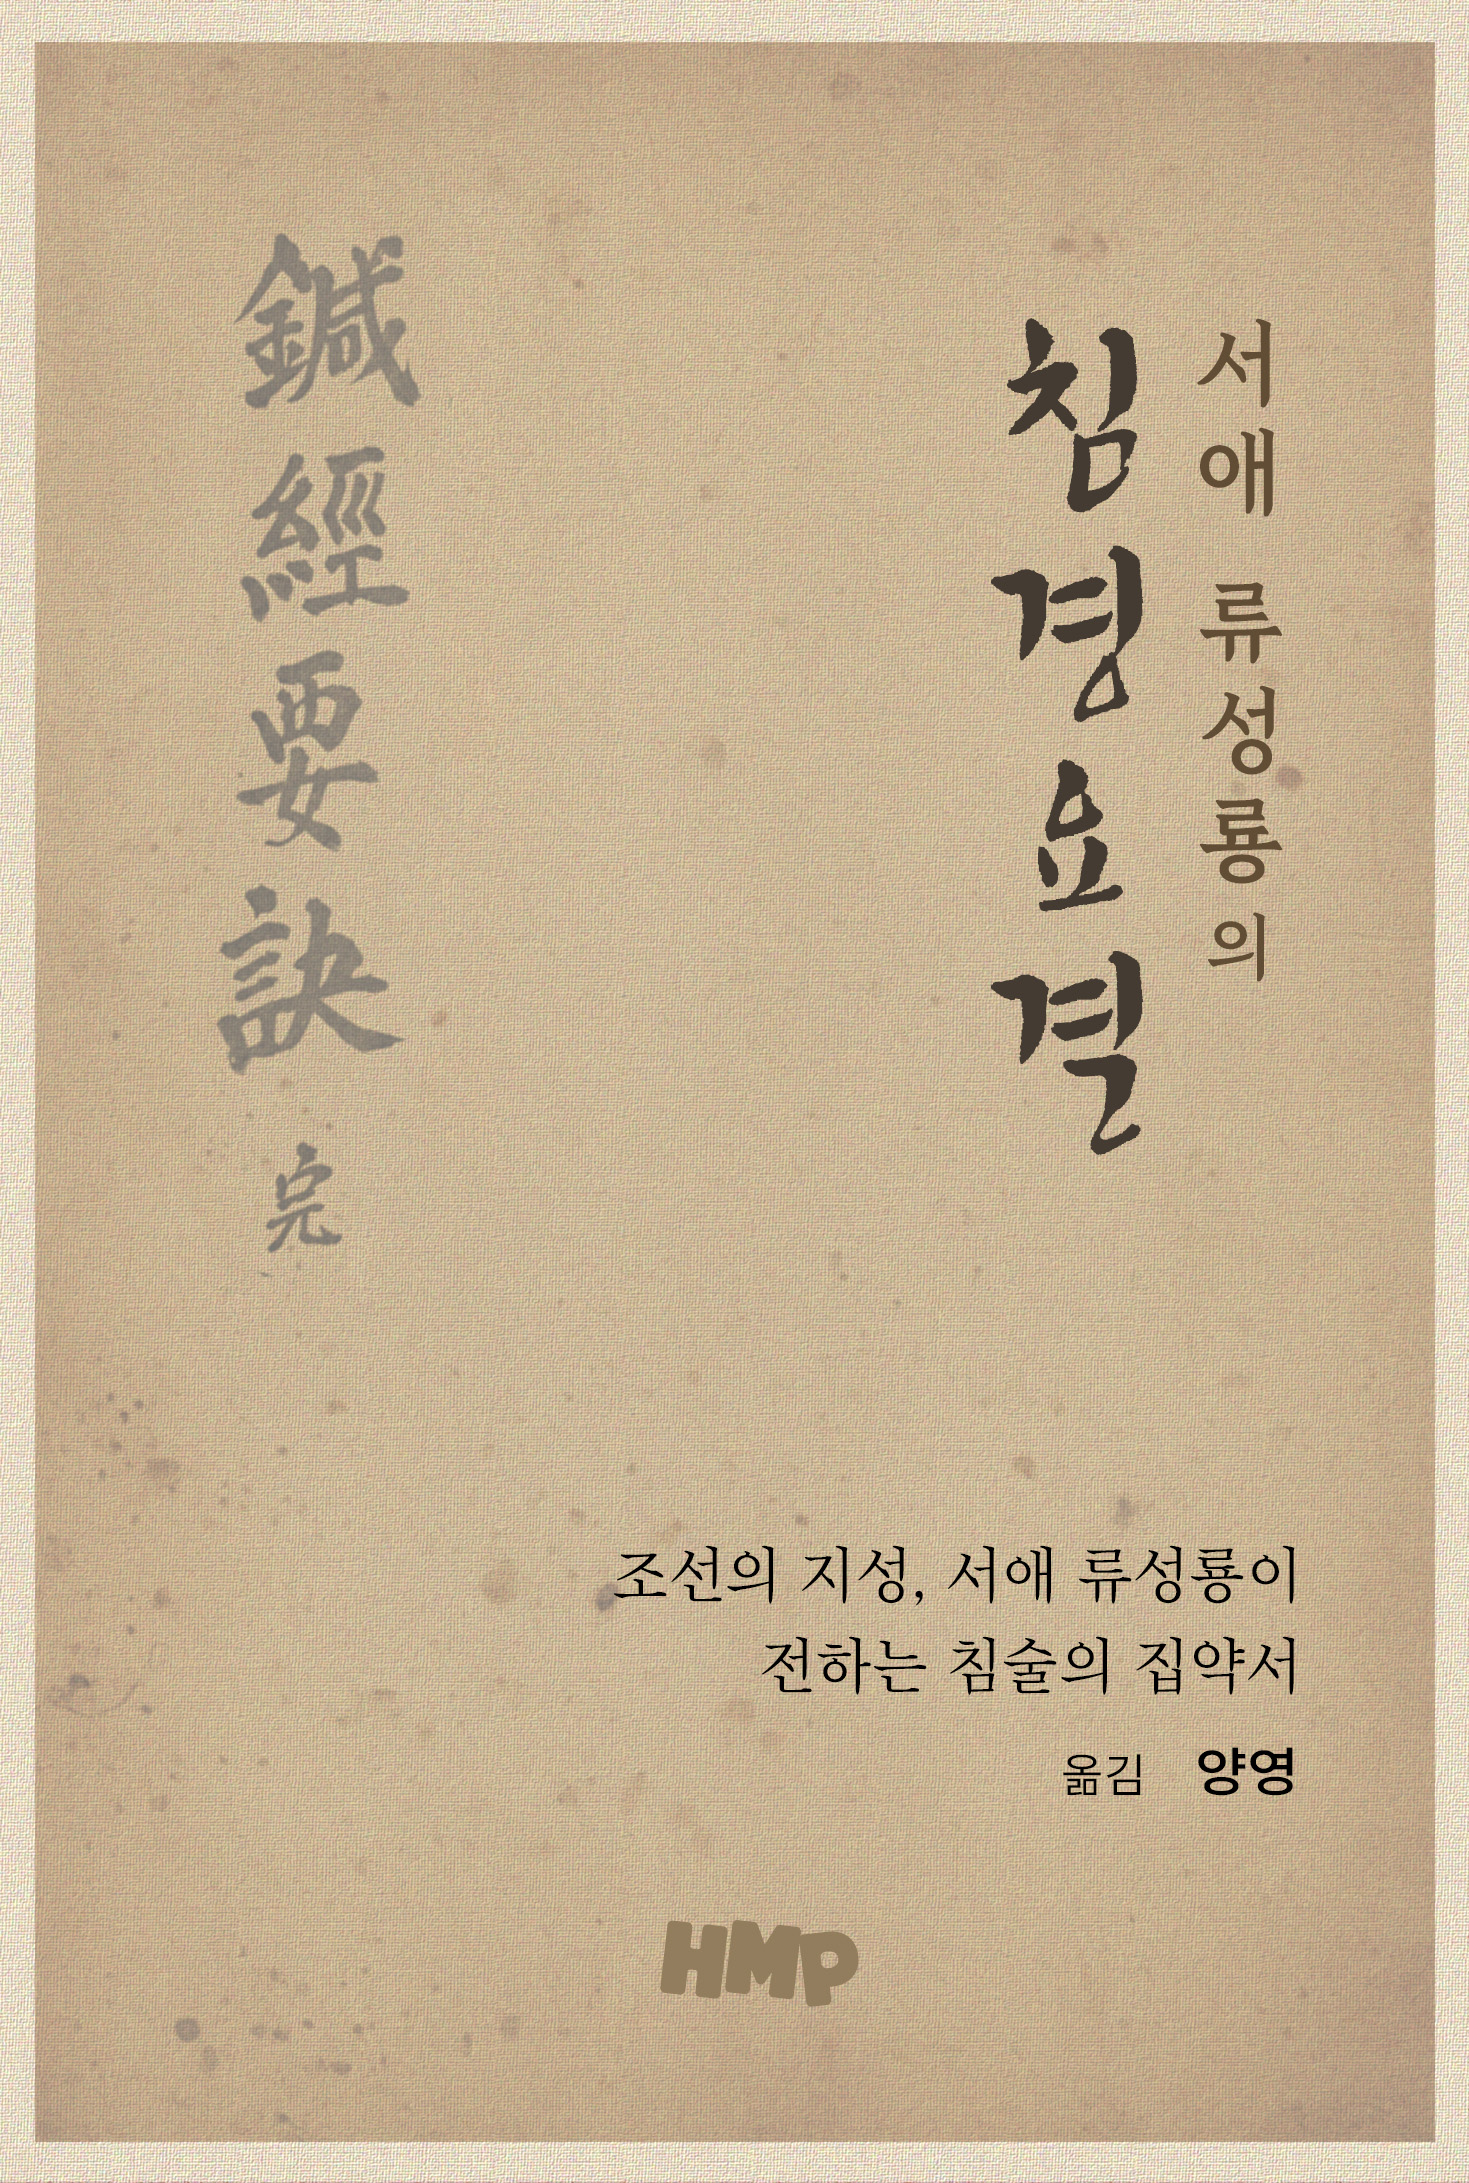 서애 류성룡의
침경요결
鍼經要訣 完
조선의 지성, 서애 류성룡이
전하는 침술의 집약서
옮김 양영
HMP